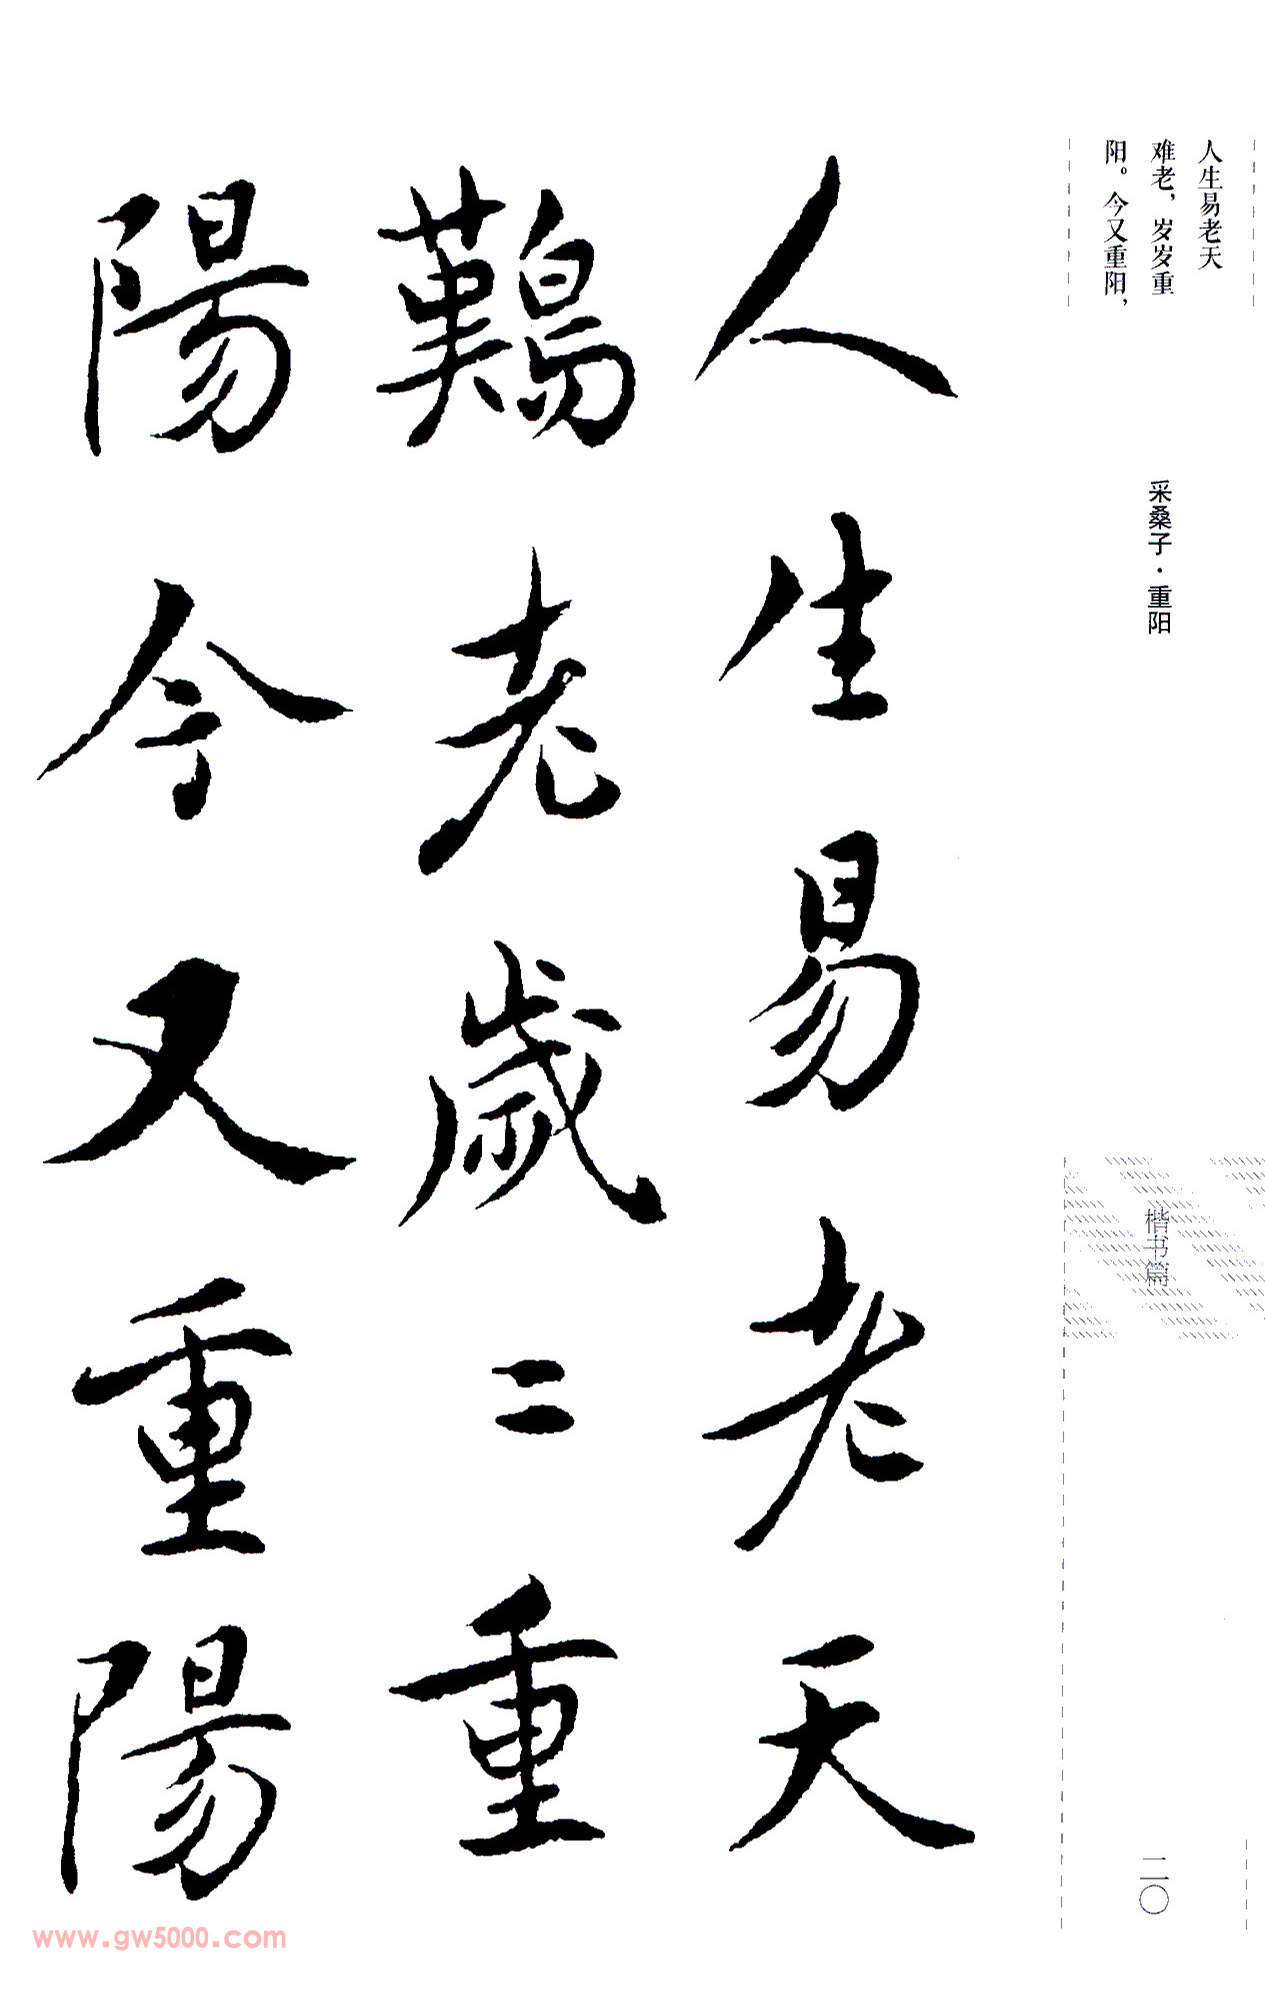 人生易老天
难老，岁岁重
阳。今又重阳，
采桑子·重阳
楷书篇
二〇
人生易老天
難老歲二重
陽今又重陽
www.gw5000.com